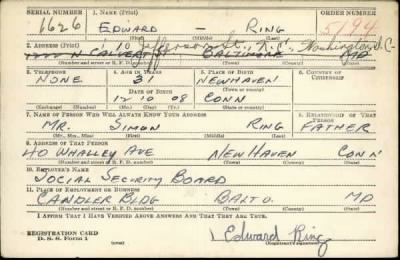 SERIAL NUMBER 1. NAME (Print) ORDER NUMBER
1626 EDWARD — RING 5194
2. ADDRESS (Print) 10 Jefferson St., N.E., Washington, D.C.
N CALVERT BALTIMORE MD
(Number and street or R. F. D. number) (Town) (County) (State)
3. TELEPHONE 4. AGE IN YEARS 5. PLACE OF BIRTH 6. COUNTRY OF CITIZENSHIP
NONE 31 NEWHAVEN
DATE OF BIRTH
12 10 08 CONN
7. NAME OF PERSON WHO WILL ALWAYS KNOW YOUR ADDRESS 8. RELATIONSHIP OF THAT PERSON
MR. SIMON RING FATHER
(Mr., Mrs., Miss) (First) (Middle) (Last)
9. ADDRESS OF THAT PERSON
40 WHALLEY AVE NEW HAVEN CONN
(Number and street or R. F. D. number) (Town) (County) (State)
10. EMPLOYER'S NAME
SOCIAL SECURITY BOARD
11. PLACE OF EMPLOYMENT OR BUSINESS
CANDLER BLDG BALTO. MD
(Number and street or R. F. D. number) (Town) (County) (State)
I AFFIRM THAT I HAVE VERIFIED ABOVE ANSWERS AND THAT THEY ARE TRUE.
REGISTRATION CARD
D. S. S. Form 1 Edward Ring
(Registrant's signature)